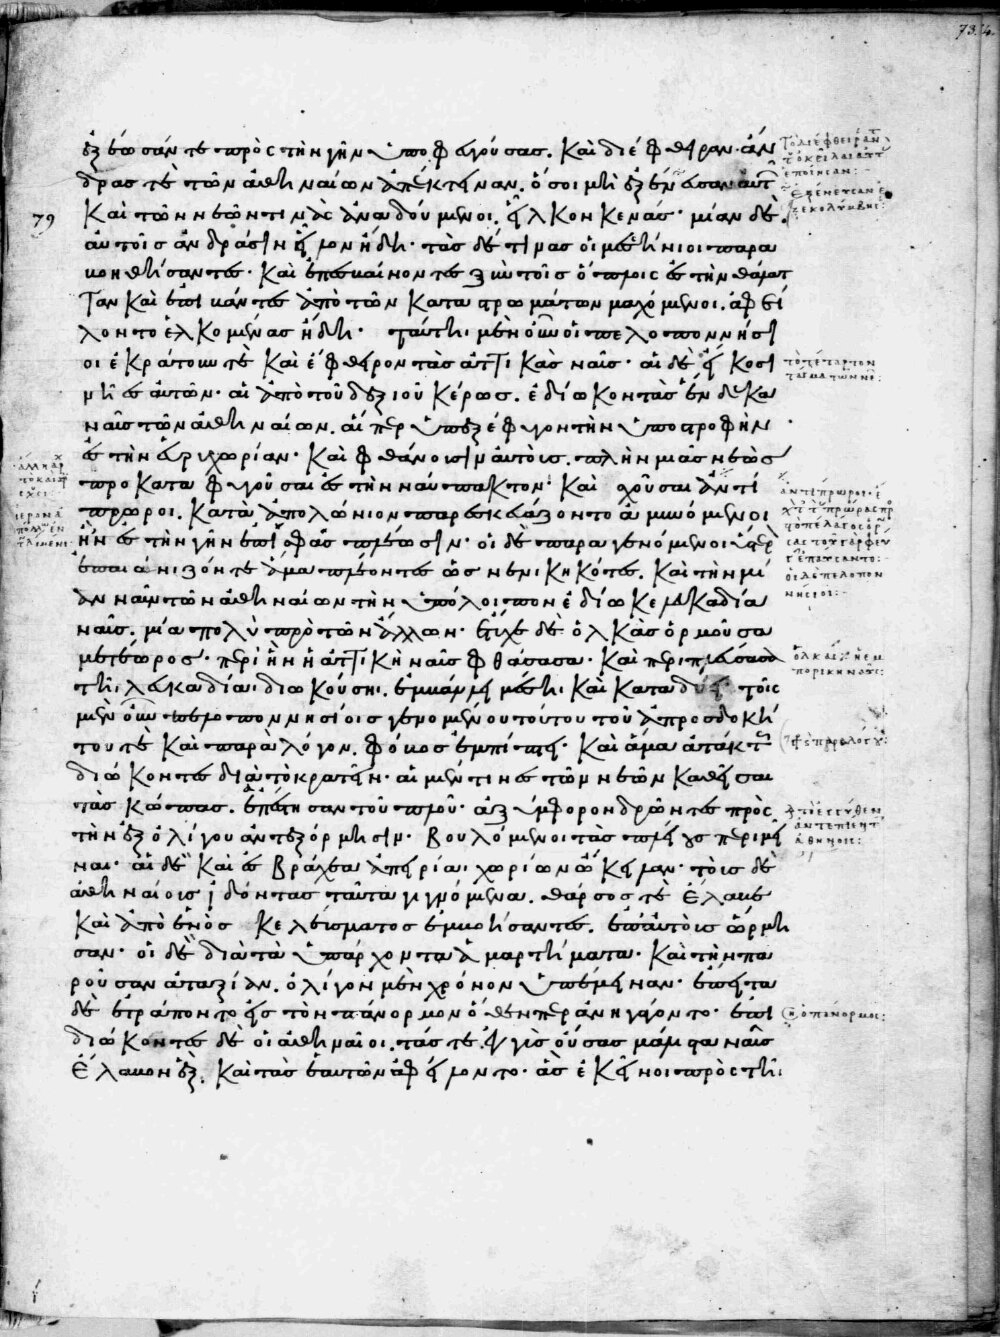 ἐξέωσάν τε πρὸς τὴν γῆν ὑποφευγούσας. καὶ διέφθειραν. ἄν
δρας τὲ τῶν ἀθηναίων ἀπέκτειναν. ὅσοι μὴ ἐξένευσαν αὐτῶν
79 καὶ τῶν νεῶν τινὰς ἀναδούμενοι. εἷλκον κενάς· μίαν δὲ
αὐτοῖς ἀνδράσιν εἷλον ἤδη· τὰς δέ τινας οἱ μεσήνιοι παρα
βοηθήσαντες· καὶ ἐπεσβαίνοντες ξὺν τοῖς ὅπλοις ἐς τὴν θάλατ
ταν καὶ ἐπιβάντες ἀπὸ τῶν καταστρωμάτων μαχόμενοι. ἀφεί
λοντο ἑλκομένας ἤδη· ταύτη μὲν οὖν οἱ πελοποννήσι
οι ἐκράτουν τὲ καὶ ἔφθειρον τὰς ἀττικὰς ναῦς· αἱ δὲ εἴκοσι
νῆες αὐτῶν· αἱ ἀπὸ τοῦ δεξιοῦ κέρως. ἐδίωκον τὰς ἕνδεκα
ναῦς τῶν ἀθηναίων. αἵπερ ὑπεξέφυγον τὴν ὑποστροφὴν
ἐς τὴν εὐριχωρίαν· καὶ φθάνουσιν αὐτοὺς. πλὴν μιᾶς νεὼς
προκαταφυγοῦσαι ἐς τὴν ναύπακτον· καὶ σχοῦσαι ἀντί
πρῳροι. κατὰ ἀπολώνιον παρεσκευάζοντο ἀμυνόμενοι
ἢν ἐς τὴν γῆν ἐπὶ σφᾶς πλέωσιν· οἱ δὲ παραγενόμενοι ὕστερον
ἐπαιάνιζόν τε ἅμα πλέοντες ὡς νενικηκότες. καὶ τὴν μί
αν ναῦν τῶν ἀθηναίων τὴν ὑπόλοιπον ἐδίωκε λευκαδία
ναῦς. μία πολὺ πρὸ τῶν ἄλλων· ἔτυχε δὲ ὁλκὰς ὁρμοῦσα
μετέωρος· περὶ ἣν ἡ ἀττικὴ ναῦς φθάσασα· καὶ περιπλεύσασα
τῆι λευκαδία διωκούσηι. ἐμβάλλει μέσηι καὶ καταδύει· τοῖς
μὲν οὖν πελοποννησίοις γενομένου τούτου τοῦ ἀπροσδοκή
του τὲ καὶ παρὰ λόγον. φόβος ἐμπίπτει· καὶ ἅμα ἀτάκτως
διώκοντες διὰ τὸ κρατεῖν· αἱ μέν τινες τῶν νεῶν καθεῖσαι
τὰς κώπας. ἐπέστησαν τοῦ πλοῦ· ἀξύμφορον δρῶντες πρὸς
τὴν ἐξ ὀλίγου ἀντεξόρμησιν· βουλόμενοι τὰς πλείους περιμεῖ
ναι· αἱ δὲ καὶ ἐς βράχεα ἀπειρίαι χωρίων ὤκειλαν· τοὺς δὲ
ἀθηναίους ἰδόντας ταῦτα γιγνόμενα. θάρσος τὲ ἔλαβε
καὶ ἀπὸ ἑνὸς κελεύσματος ἐμβοήσαντες. ἐπ' αὐτοὺς ὥρμη
σαν· οἱ δὲ διὰ τὰ ὑπάρχοντα ἁμαρτήματα· καὶ τὴν πα
ροῦσαν ἀταξίαν. ὀλίγον μὲν χρόνον ὑπέμειναν· ἔπειτα
δὲ ἐτράποντο ἐς τὸν πάνορμον ὅθεν περ ἀνηγάγοντο· ἐπι
διώκοντες δὲ οἱ ἀθηναῖοι. τάς τε ἐγγὺς οὔσας μάλιστα ναῦς
ἔλαβον ἓξ. καὶ τὰς ἑαυτῶν ἀφείλοντο· ἃς ἐκεῖνοι πρὸς τῆι
τὸ τέταρτον
ὁ πάνορμος: